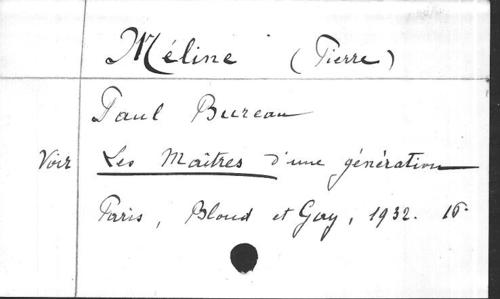 Méline (Pierre)
Paul Bureau
Voir Les Maîtres d'une génération
Paris, Bloud et Gay, 1932. 16°